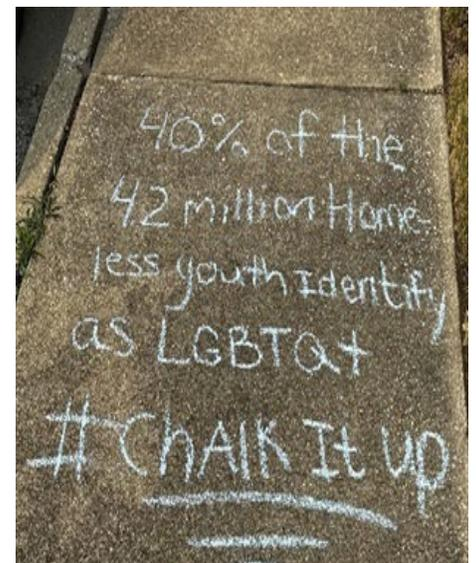 40% of the
42 million Home-
less youth Identify
as LGBTQ+
#ChAlK It up